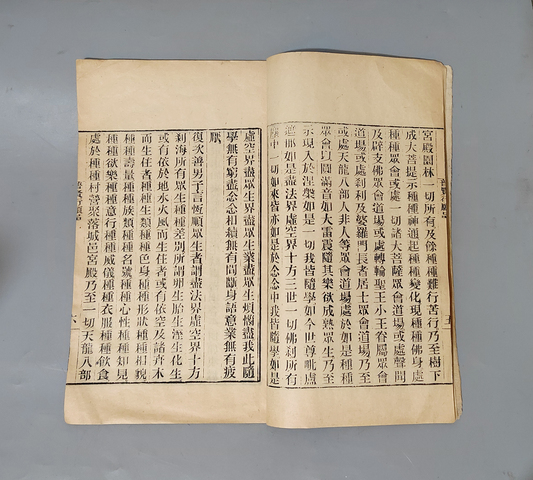 宮殿園林一切所有及餘種種難行苦行乃至樹下
成大菩提示種種神通起種種變化現種種佛身處
種種眾會或處一切諸大菩薩眾會道場或處聲聞
及辟支佛眾會道場或處轉輪聖王小王眷屬眾會
道場或處剎利及婆羅門長者居士眾會道場乃至
或處天龍八部人非人等眾會道場處於如是種種
眾會以圓滿音如大雷震隨其樂欲成熟眾生乃至
示現入於涅槃如是一切我皆隨學如今世尊毗盧
遮那如是盡法界虛空界十方三世一切佛剎所有
塵中一切如來皆亦如是於念念中我皆隨學如是
虛空界盡眾生界盡眾生業盡眾生煩惱盡我此隨
學無有窮盡念念相續無有間斷身語意業無有疲
厭
復次善男子言恆順眾生者謂盡法界虛空界十方
剎海所有眾生種種差別所謂卵生胎生溼生化生
或有依於地水火風而生住者或有依空及諸卉木
而生住者種種生類種種色身種種形狀種種相貌
種種壽量種種族類種種名號種種心性種種知見
種種欲樂種種意行種種威儀種種衣服種種飲食
處於種種村營聚落城邑宮殿乃至一切天龍八部